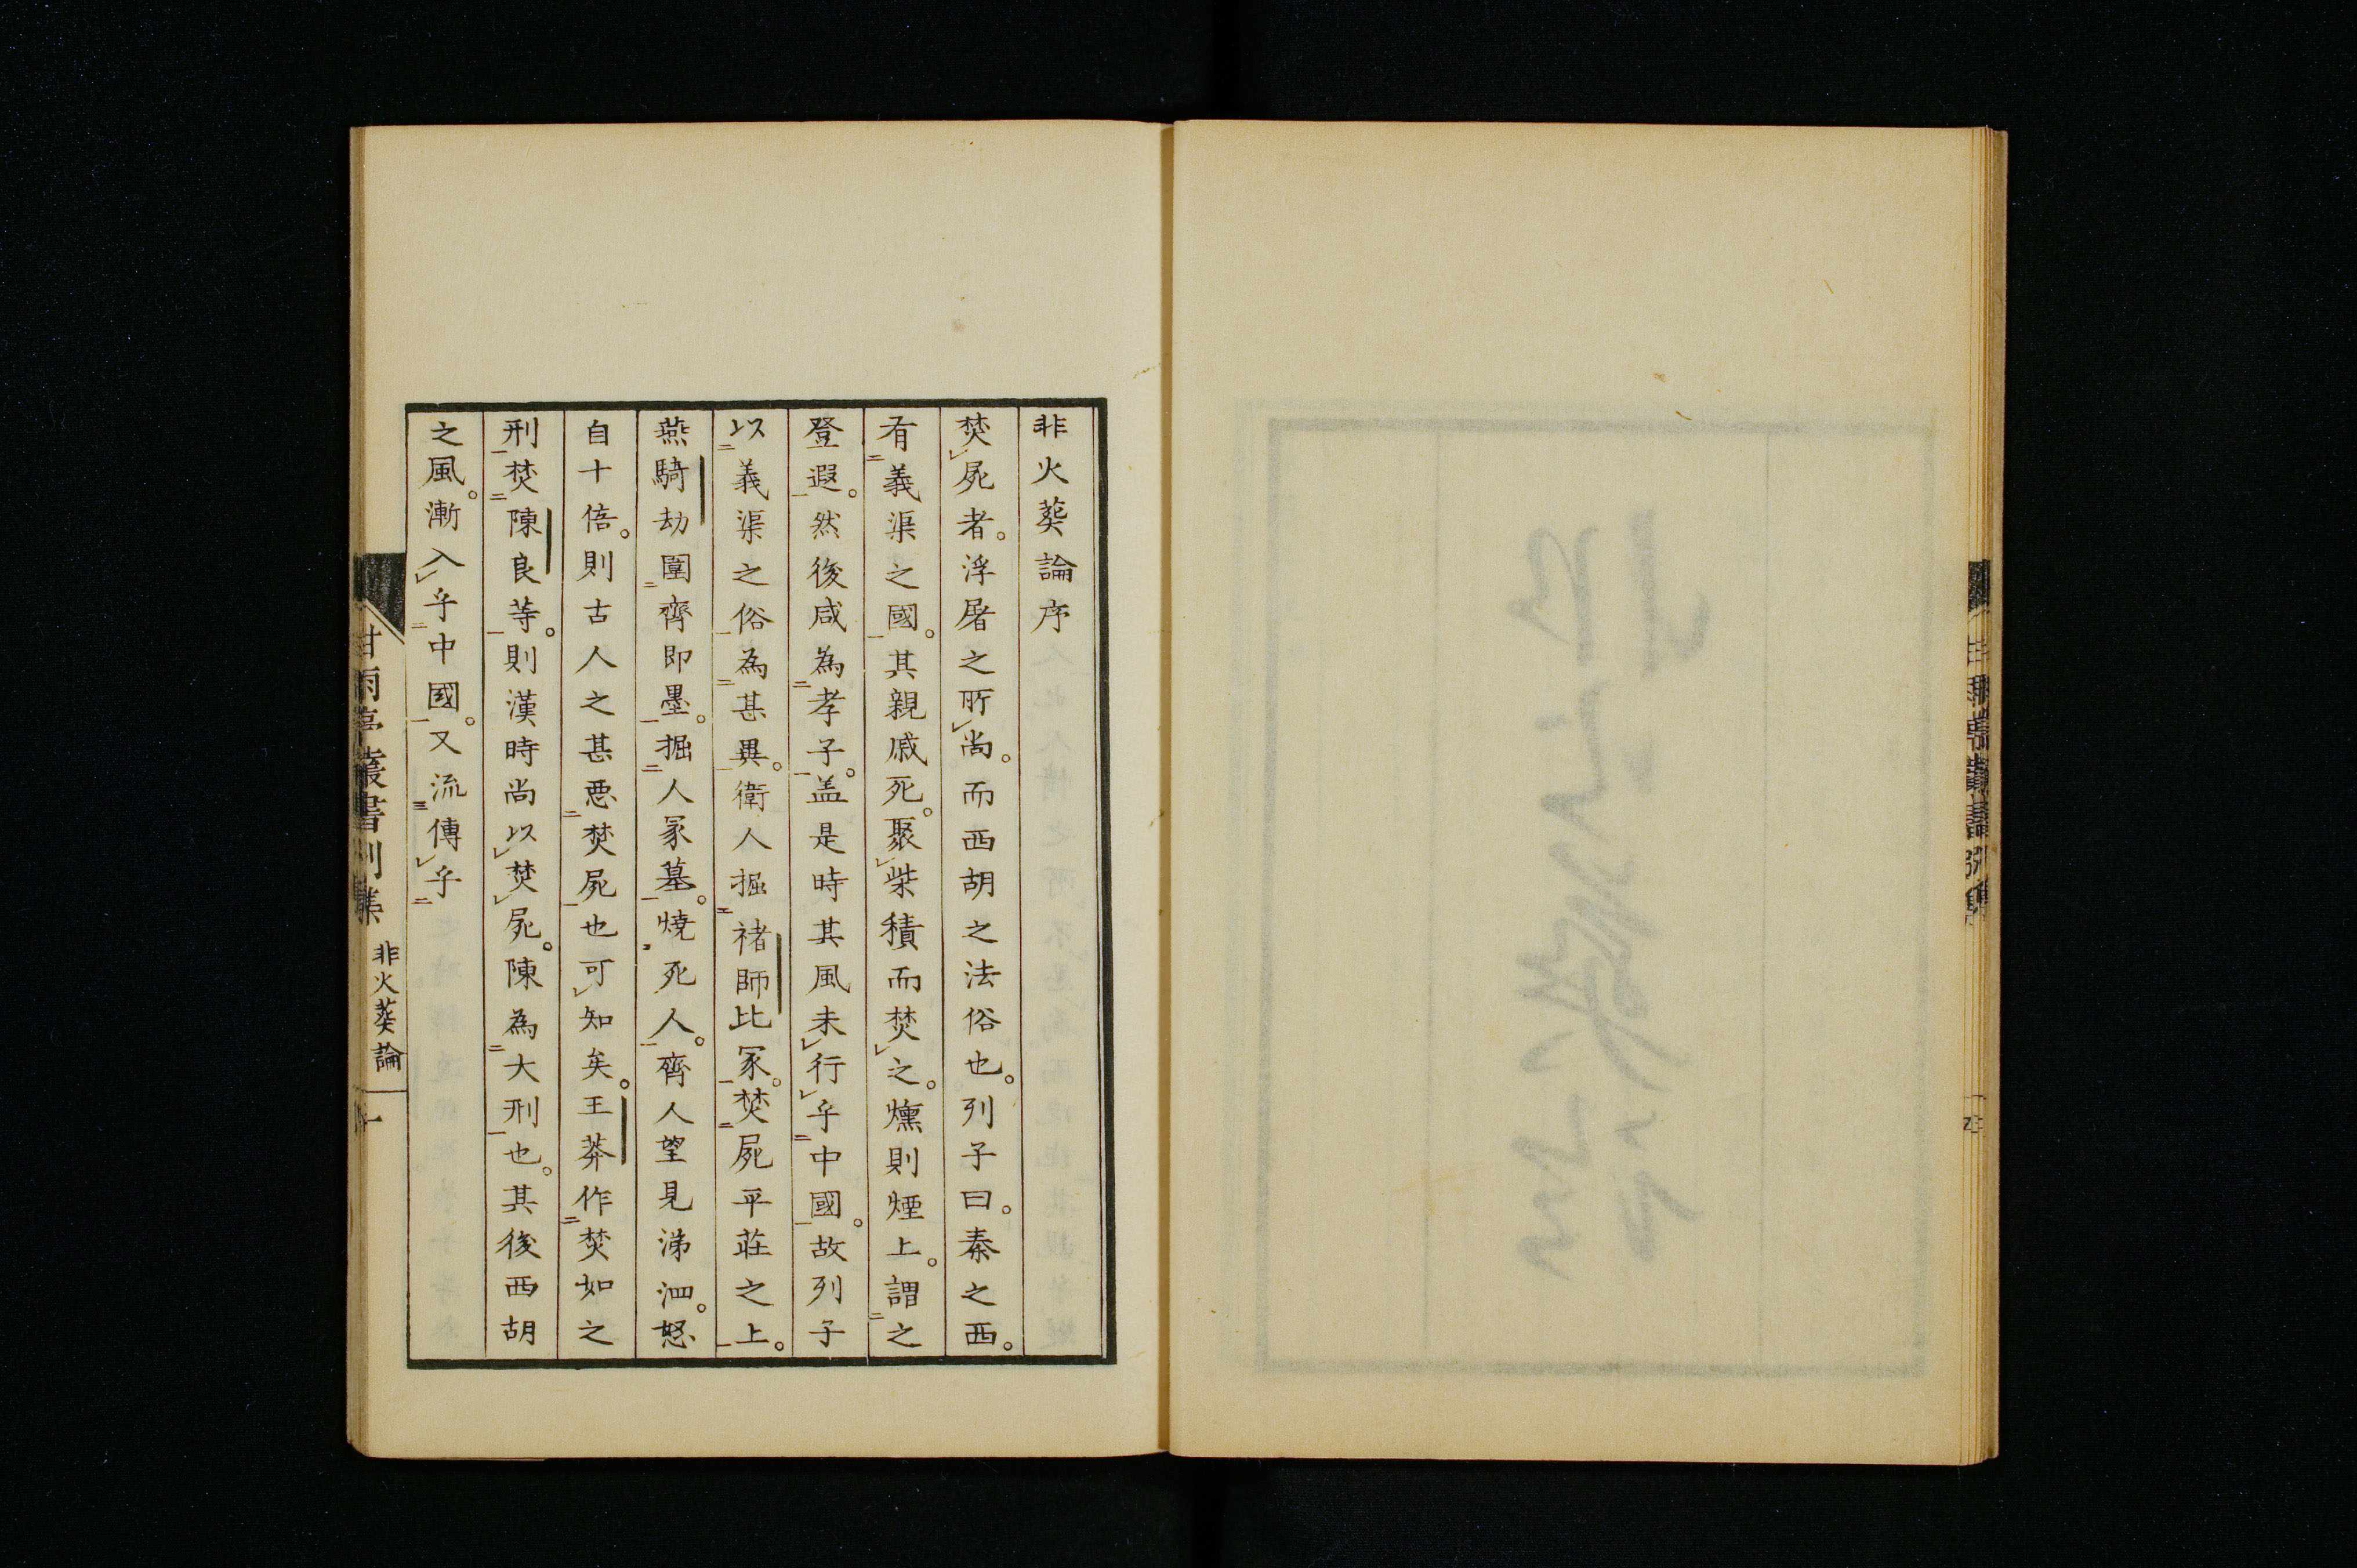 非火葬論序
焚屍者。浮屠之所尚。而西胡之法俗也。列子曰。秦之西。
有義渠之國。其親戚死。聚柴積而焚之。燻則煙上。謂之
登遐。然後咸為孝子。盖是時其風未行乎中國。故列子
以義渠之俗為甚異。衛人掘褚師比冢。焚屍平莊之上。
燕騎劫圍齊即墨。掘人冢墓。燒死人。齊人望見涕泗。怒
自十倍。則古人之甚惡焚屍也可知矣。王莽作焚如之
刑焚陳良等。則漢時尚以焚屍。陳為大刑也。其後西胡
之風。漸入乎中國。又流傳乎
甘雨亭叢書別集 非火葬論 一